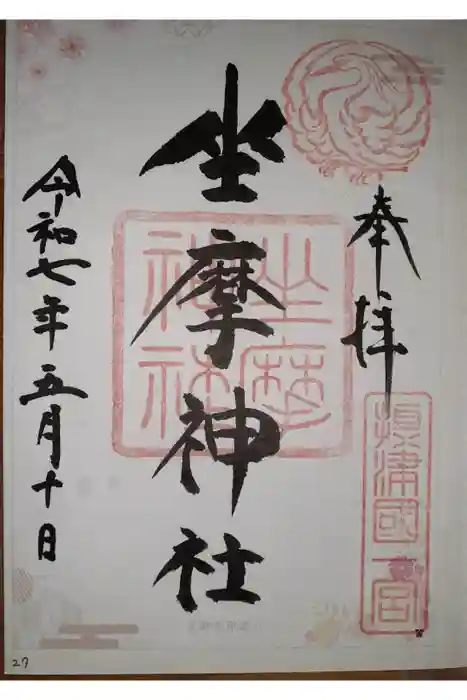 奉拝
攝津國一宮
坐摩神社
坐摩神社
令和七年五月十日
27